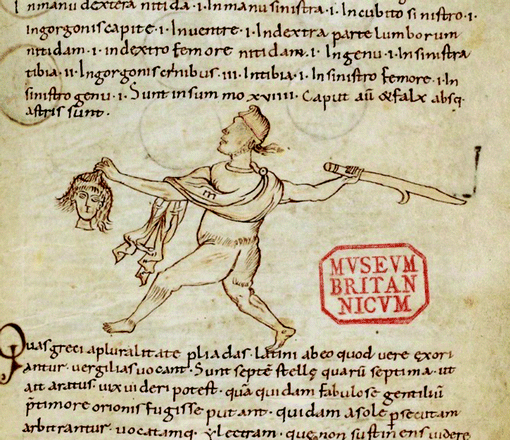 In manu dextera nitida ·i· In manu sinistra ·i· In cubito sinistro ·i·
In gorgonis capite ·i· In ventre ·i· In dextra parte lumborum
nitidam ·i· in dextro femore nitidam ·i· In genu ·i· In sinistra
tibia ·ii· In gorgonis crinibus ·iii· In tibia ·i· In sinistro femore ·i· In
sinistro genu ·i· Sunt in summo xviiii· Caput aū & falx absq·
astris sunt·
MVSEVM
BRITAN
NICVM
Quas greci a pluralitate pliadas· latini ab eo quod vere exori
antur· vergilias vocant· Sunt septē stellę quarū septima· ut
ait aratus· vix videri potest· quā quidam fabulose gentiliū
p̄timore orionis fugisse putant· quidam a sole p̄secutam
arbitrantur· vocatamq·